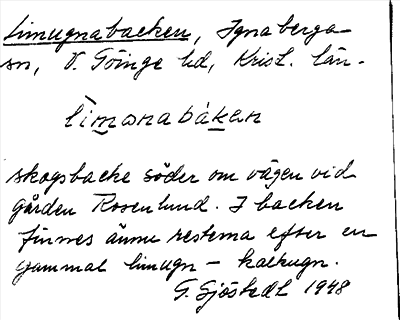 Limugnabacken, Ignaberga
sn, V. Göinge hd, Krist. län.
lìmωnabákan
skogsbacke söder om vägen vid
gården Rosenlund. I backen
finnes ännu resterna efter en
gammal limugn – kalkugn.
G. Sjöstedt 1948